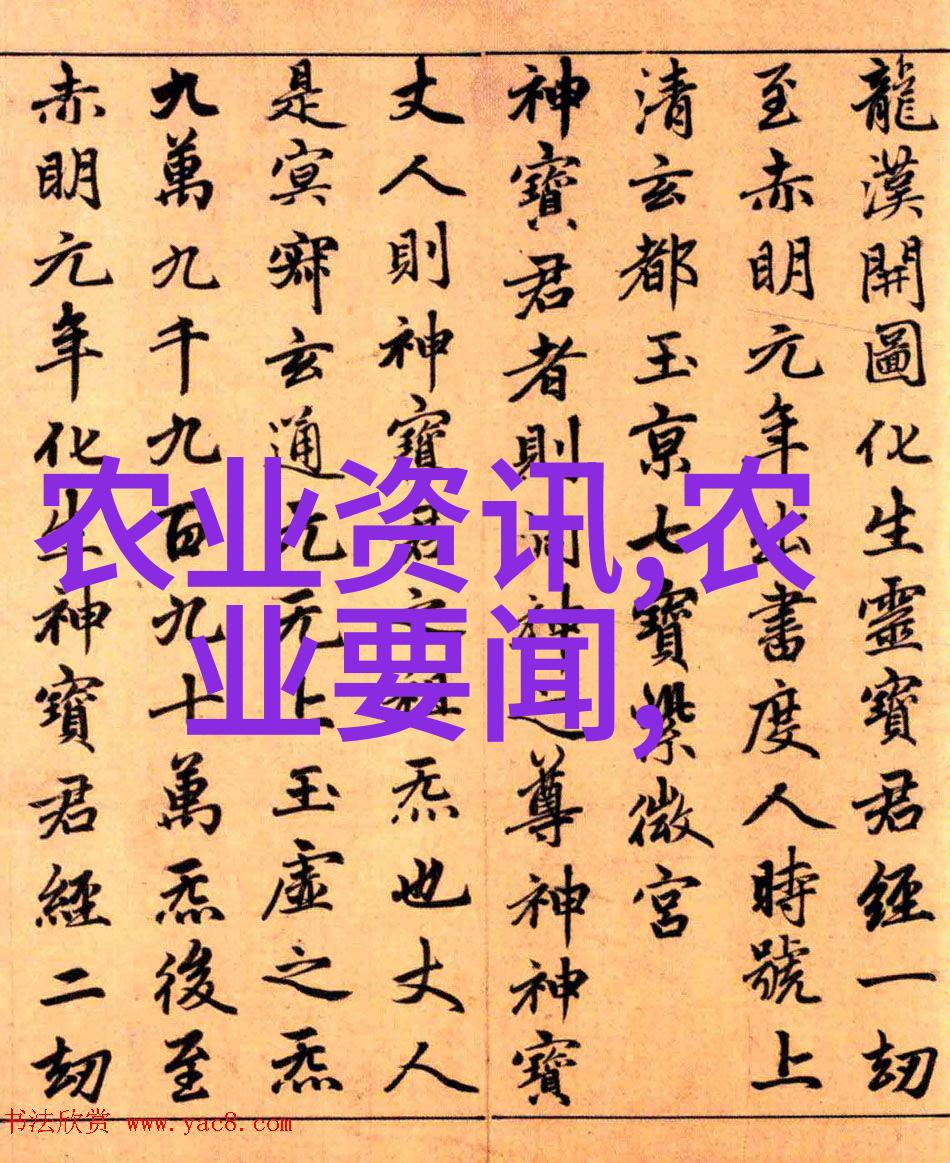 龍漢開圖化生靈寶君經一劫
至赤明元年出書度人時號上
清玄都玉京七寶紫微宮
神寶君者則洞神之尊神神寶
丈人則神寶君之祖炁也丈人
是冥寂玄通元无上玉虛之炁
九萬九千九百九十萬炁後至
赤明元年化生神寶君經二劫
农业资讯,农
业要闻,
书法欣赏 www.yac8.com